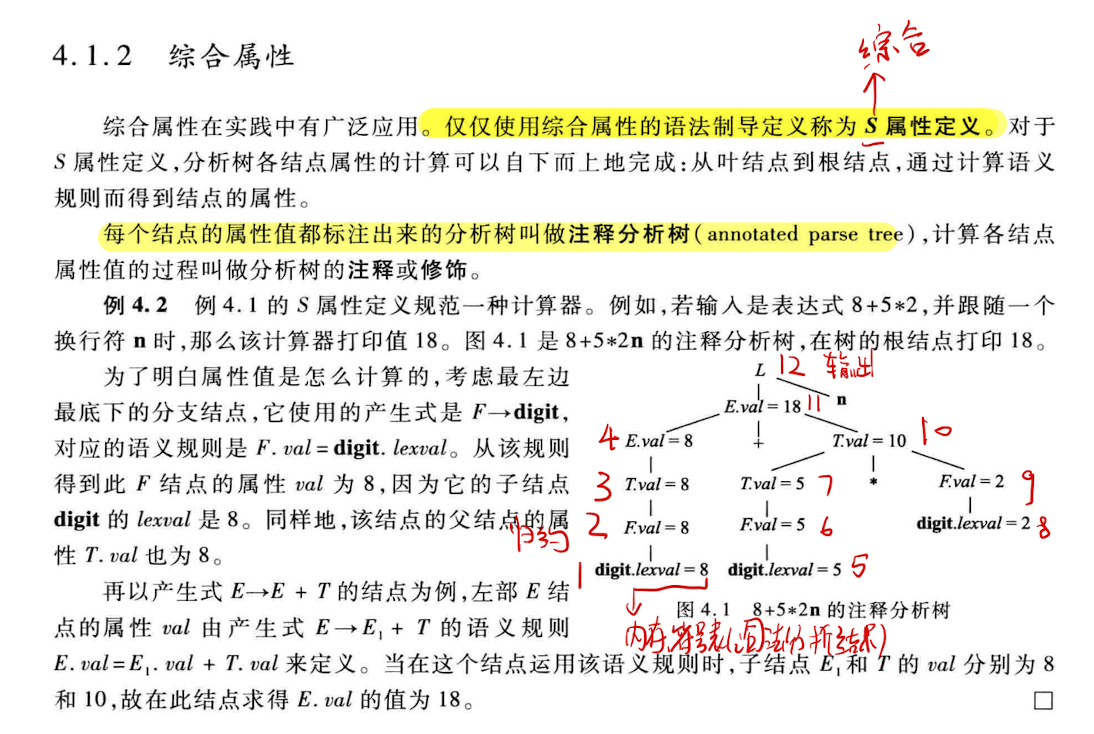 4.1.2 综合属性
综合
综合属性在实践中有广泛应用。仅仅使用综合属性的语法制导定义称为 S 属性定义。对于
S 属性定义,分析树各结点属性的计算可以自下而上地完成:从叶结点到根结点,通过计算语义
规则而得到结点的属性。
每个结点的属性值都标注出来的分析树叫做注释分析树(annotated parse tree),计算各结点
属性值的过程叫做分析树的注释或修饰。
例 4.2 例 4.1 的 S 属性定义规范一种计算器。例如,若输入是表达式 8+5*2,并跟随一个
换行符 n 时,那么该计算器打印值 18。图 4.1 是 8+5*2n 的注释分析树,在树的根结点打印 18。
为了明白属性值是怎么计算的,考虑最左边
最底下的分支结点,它使用的产生式是 F→digit,
对应的语义规则是 F. val = digit. lexval。从该规则
得到此 F 结点的属性 val 为 8,因为它的子结点
digit 的 lexval 是 8。同样地,该结点的父结点的属
性 T. val 也为 8。
再以产生式 E→E + T 的结点为例,左部 E 结
点的属性 val 由产生式 E→E₁ + T 的语义规则
L 12 输出
E.val = 18 11 n
4 E.val = 8 + T.val = 10 10
3 T.val = 8 T.val = 5 7 * F.val = 2 9
归约 2 F.val = 8 F.val = 5 6 digit.lexval = 2 8
1 digit.lexval = 8 digit.lexval = 5 5
图 4.1 8+5*2n 的注释分析树
内存,符号表(词法分析结果)
E. val = E₁. val + T. val 来定义。当在这个结点运用该语义规则时,子结点 E₁ 和 T 的 val 分别为 8
和 10,故在此结点求得 E. val 的值为 18。 □